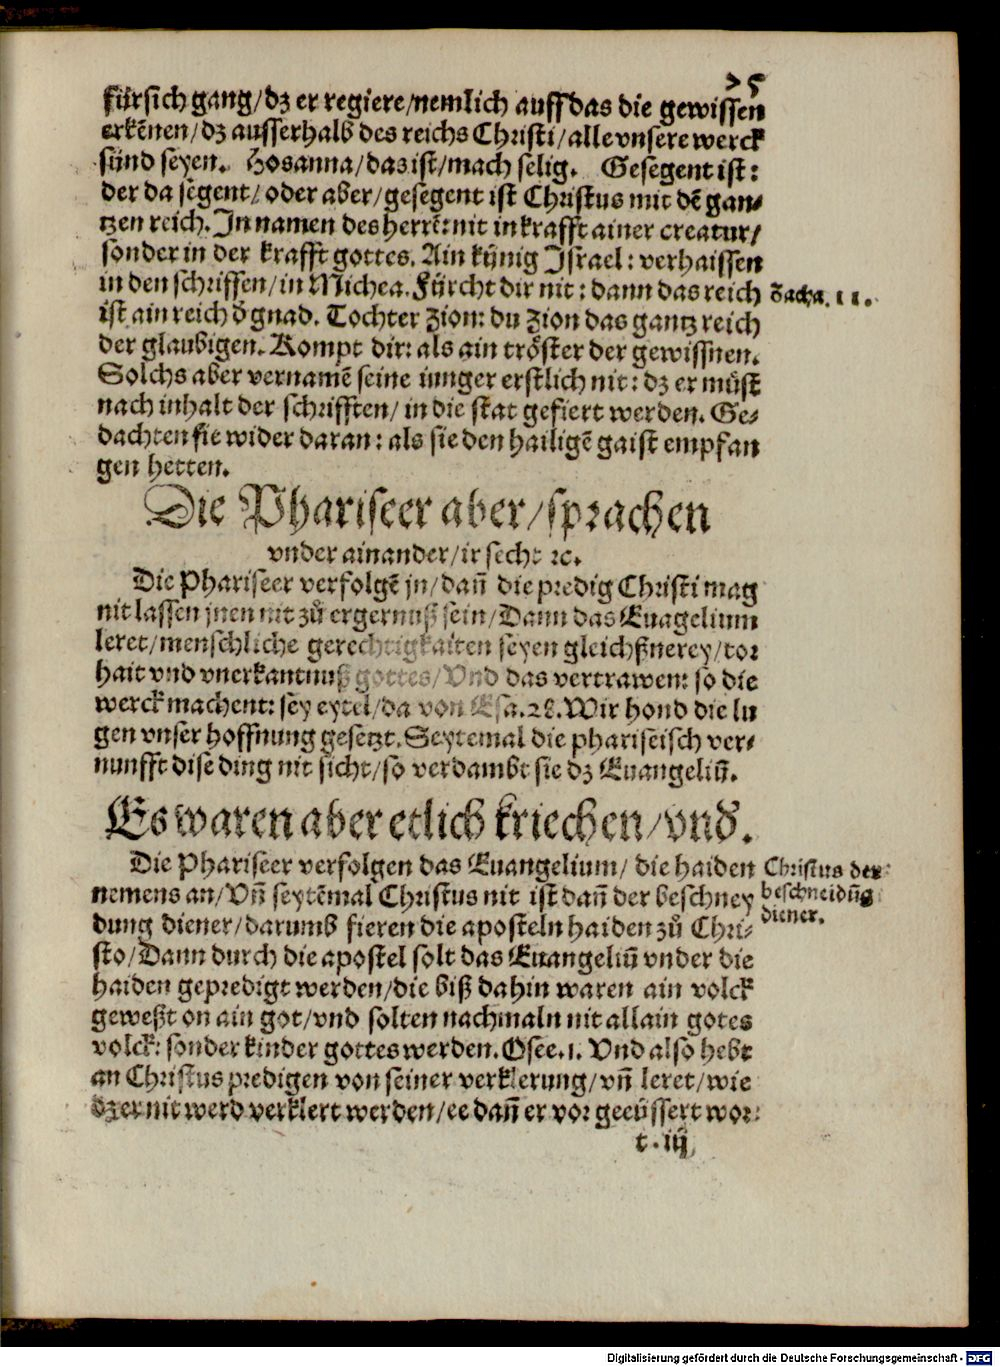 75
fürsich gang/dz er regiere/nemlich auff das die gewissen
erkēnen/dz ausserhalb des reichs Christi/alle vnsere werck
sünd seyen. Hosanna/das ist/mach selig. Gesegent ist:
der da segent/oder aber/gesegent ist Christus mit dē gan-
tzen reich. In namen des herrē: nit in krafft ainer creatur/
sonder in der krafft gottes. Ain künig Israel: verhaissen
in den schriffen/in Michea. Fürcht dir nit: dann das reich
Zacha. 11.
ist ain reich d̄ gnad. Tochter Zion: du Zion das gantz reich
der glaubigen. Kompt dir: als ain tröster der gewissnen.
Solchs aber vernamē seine iunger erstlich nit: dz er müst
nach inhalt der schrifften/in die stat gefiert werden. Ge-
dachten sie wider daran: als sie den hailigē gaist empfan
gen hetten.
Die Phariseer aber/sprachen
vnder ainander/ir secht ꝛc.
Die Phariseer verfolgē jn/dañ die predig Christi mag
nit lassen jnen nit zů ergernuß sein/Dann das Euagelium
leret/menschliche gerechtigkaiten seyen gleichßnerey/tor
hait vnd vnerkantnuß gottes/Vnd das vertrawen: so die
werck machent: sey eytel/da von Esa. 28. Wir hond die lu
gen vnser hoffnung gesetzt. Seytemal die phariseisch ver-
nunfft dise ding nit sicht/so verdambt sie dz Euangeliū.
Es waren aber etlich kriechen/vnd̄.
Die Phariseer verfolgen das Euangelium/die haiden
Christus der
nemens an/Vñ seytēmal Christus nit ist dañ der beschney
beschneidūg
dung diener/darumb fieren die aposteln haiden zů Chri-
diener.
sto/Dann durch die apostel solt das Euangeliū vnder die
haiden gepredigt werden/die biß dahin waren ain volck
geweßt on ain got/vnd solten nachmaln nit allain gotes
volck: sonder kinder gottes werden. Osee. 1. Vnd also hebt
an Christus predigen von seiner verklerung/vñ leret/wie
dz er nit werd verklert werden/ee dañ er vor geeüssert wor-
t. iij
Digitalisierung gefördert durch die Deutsche Forschungsgemeinschaft - DFG